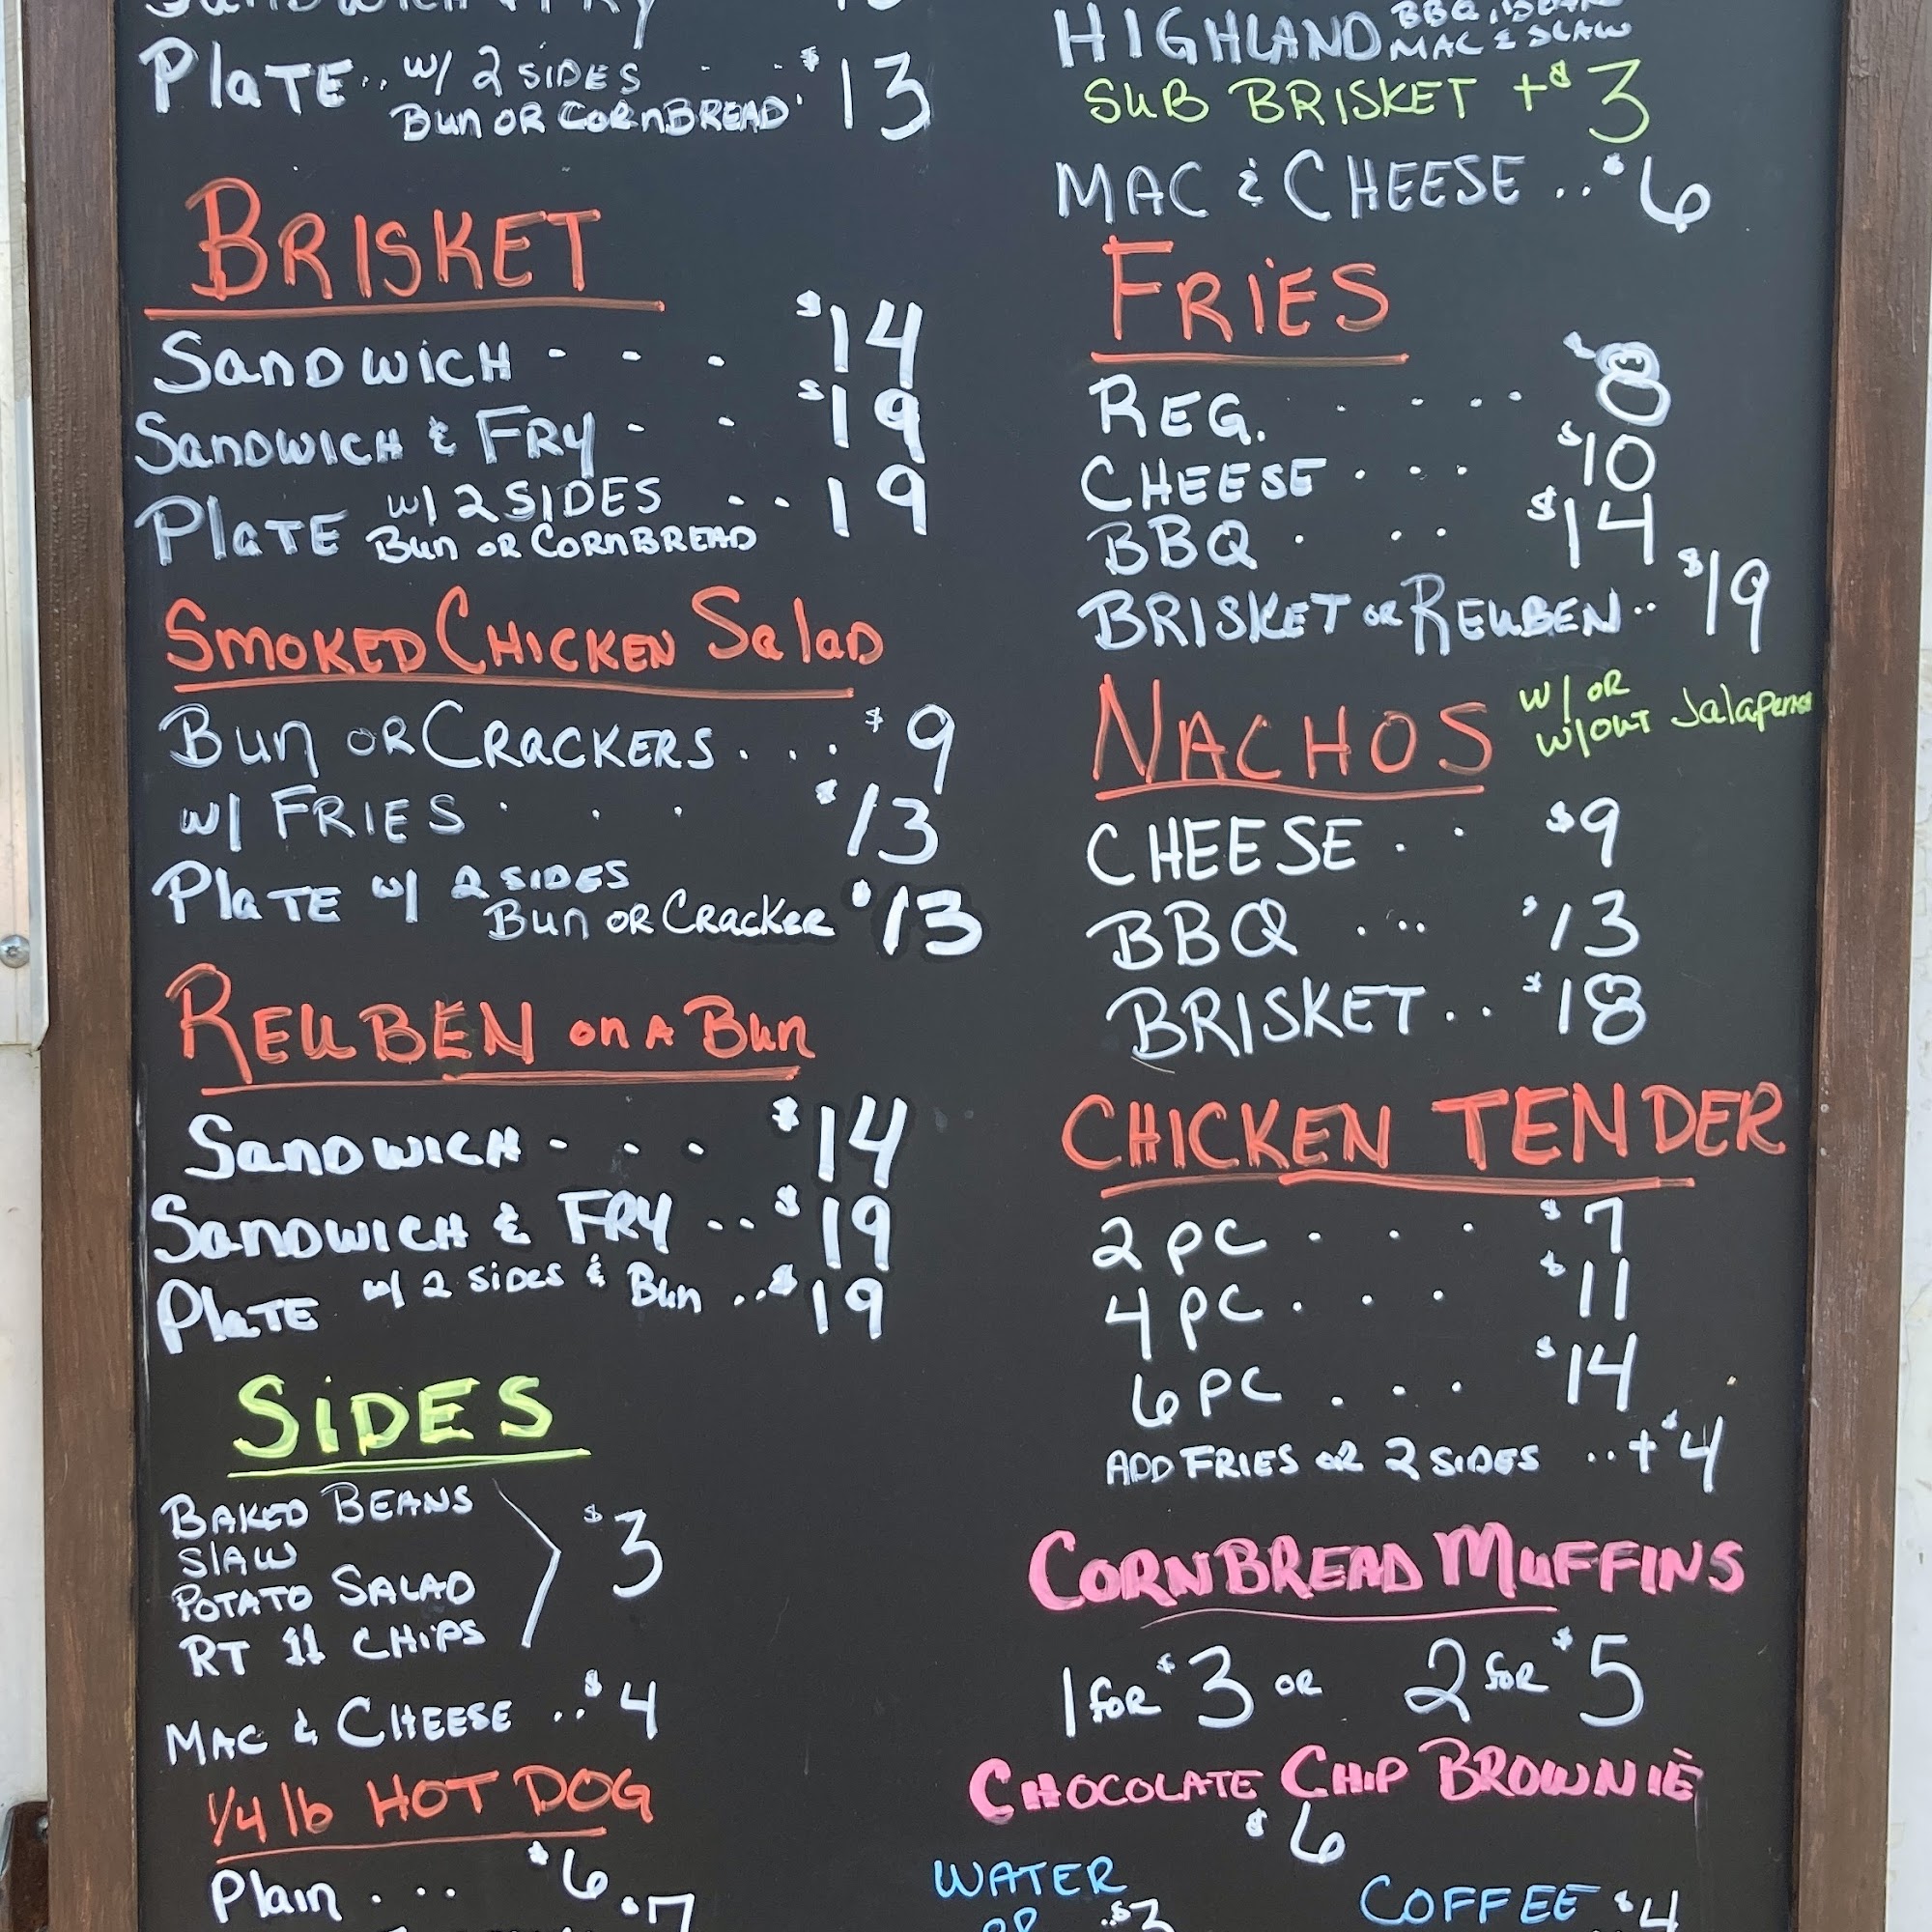 SANDWICH & FRY
PlaTE .. w/ 2 SIDES - - $13
Bun OR CORNBREAD
BRISKET
SANDWICH - - - $14
SANDWICH & FRY - - $19
PlaTE w/ 2 SIDES - - . 19
Bun OR CORNBREAD
SMOKED CHICKEN SalaD
Bun OR CRACKERS . . . $9
w/ FRIES . . . $13
PlaTE w/ 2 SIDES
Bun OR CRACKER $13
REUBEN on A Bun
SANDWICH - - - $14
SANDWICH & FRY - - - $19
PlaTE w/ 2 SIDES & Bun .. $19
SiDES
BAKED BEANS
SlAW
POTATO SALAD
RT 11 CHiPS
$3
MAC & CHEESE .. $4
1/4 lb HOT DOG
Plain . . . $6
$7
HIGHLAND BBQ,
MAC & SLAW
SUB BRISKET +$3
MAC & CHEESE .. $6
FRiES
REG. . . . . . $8
CHEESE . . . $10
BBQ . . . $14
BRISKET OR REUBEN .. $19
NACHOS W/ OR
W/OUT Jalapenos
CHEESE . . $9
BBQ . ... $13
BRISKET . . . $18
CHICKEN TENDER
2 PC . . . $7
4 PC . . . $11
6 PC . . . $14
ADD FRIES OR 2 SIDES .. +$4
CORNBREAD MUFFINS
1 for $3 OR 2 for $5
CHOCOLATE CHIP BROWNIE
$6
WATER
OR . $3
COFFEE $4